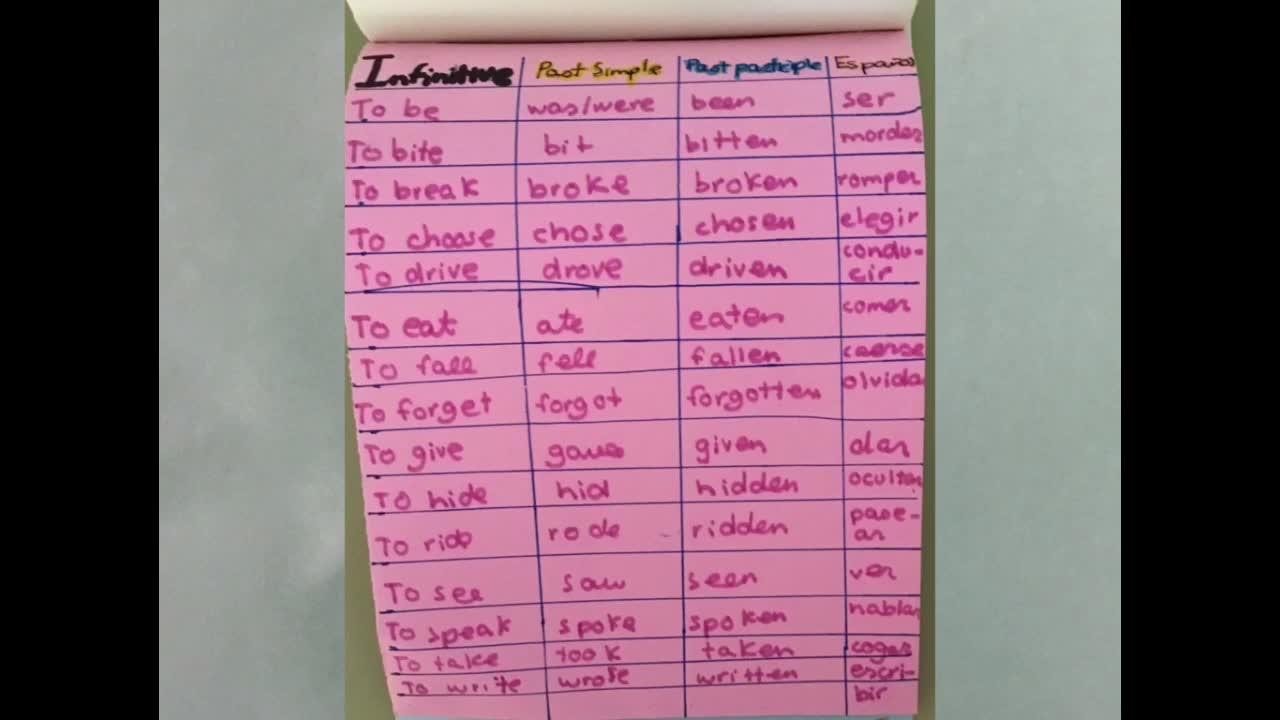 Infinitive Past Simple Past participle Español
To be was/were been ser
To bite bit bitten morder
To break broke broken romper
To choose chose chosen elegir
To drive drove driven condu-
cir
To eat ate eaten comer
To fall fell fallen caerse
To forget forgot forgotten olvida
To give gave given dar
To hide hid hidden ocultar
To ride rode ridden pase-
ar
To see saw seen ver
To speak spoke spoken hablar
To take took taken coger
To write wrote written escri-
bir